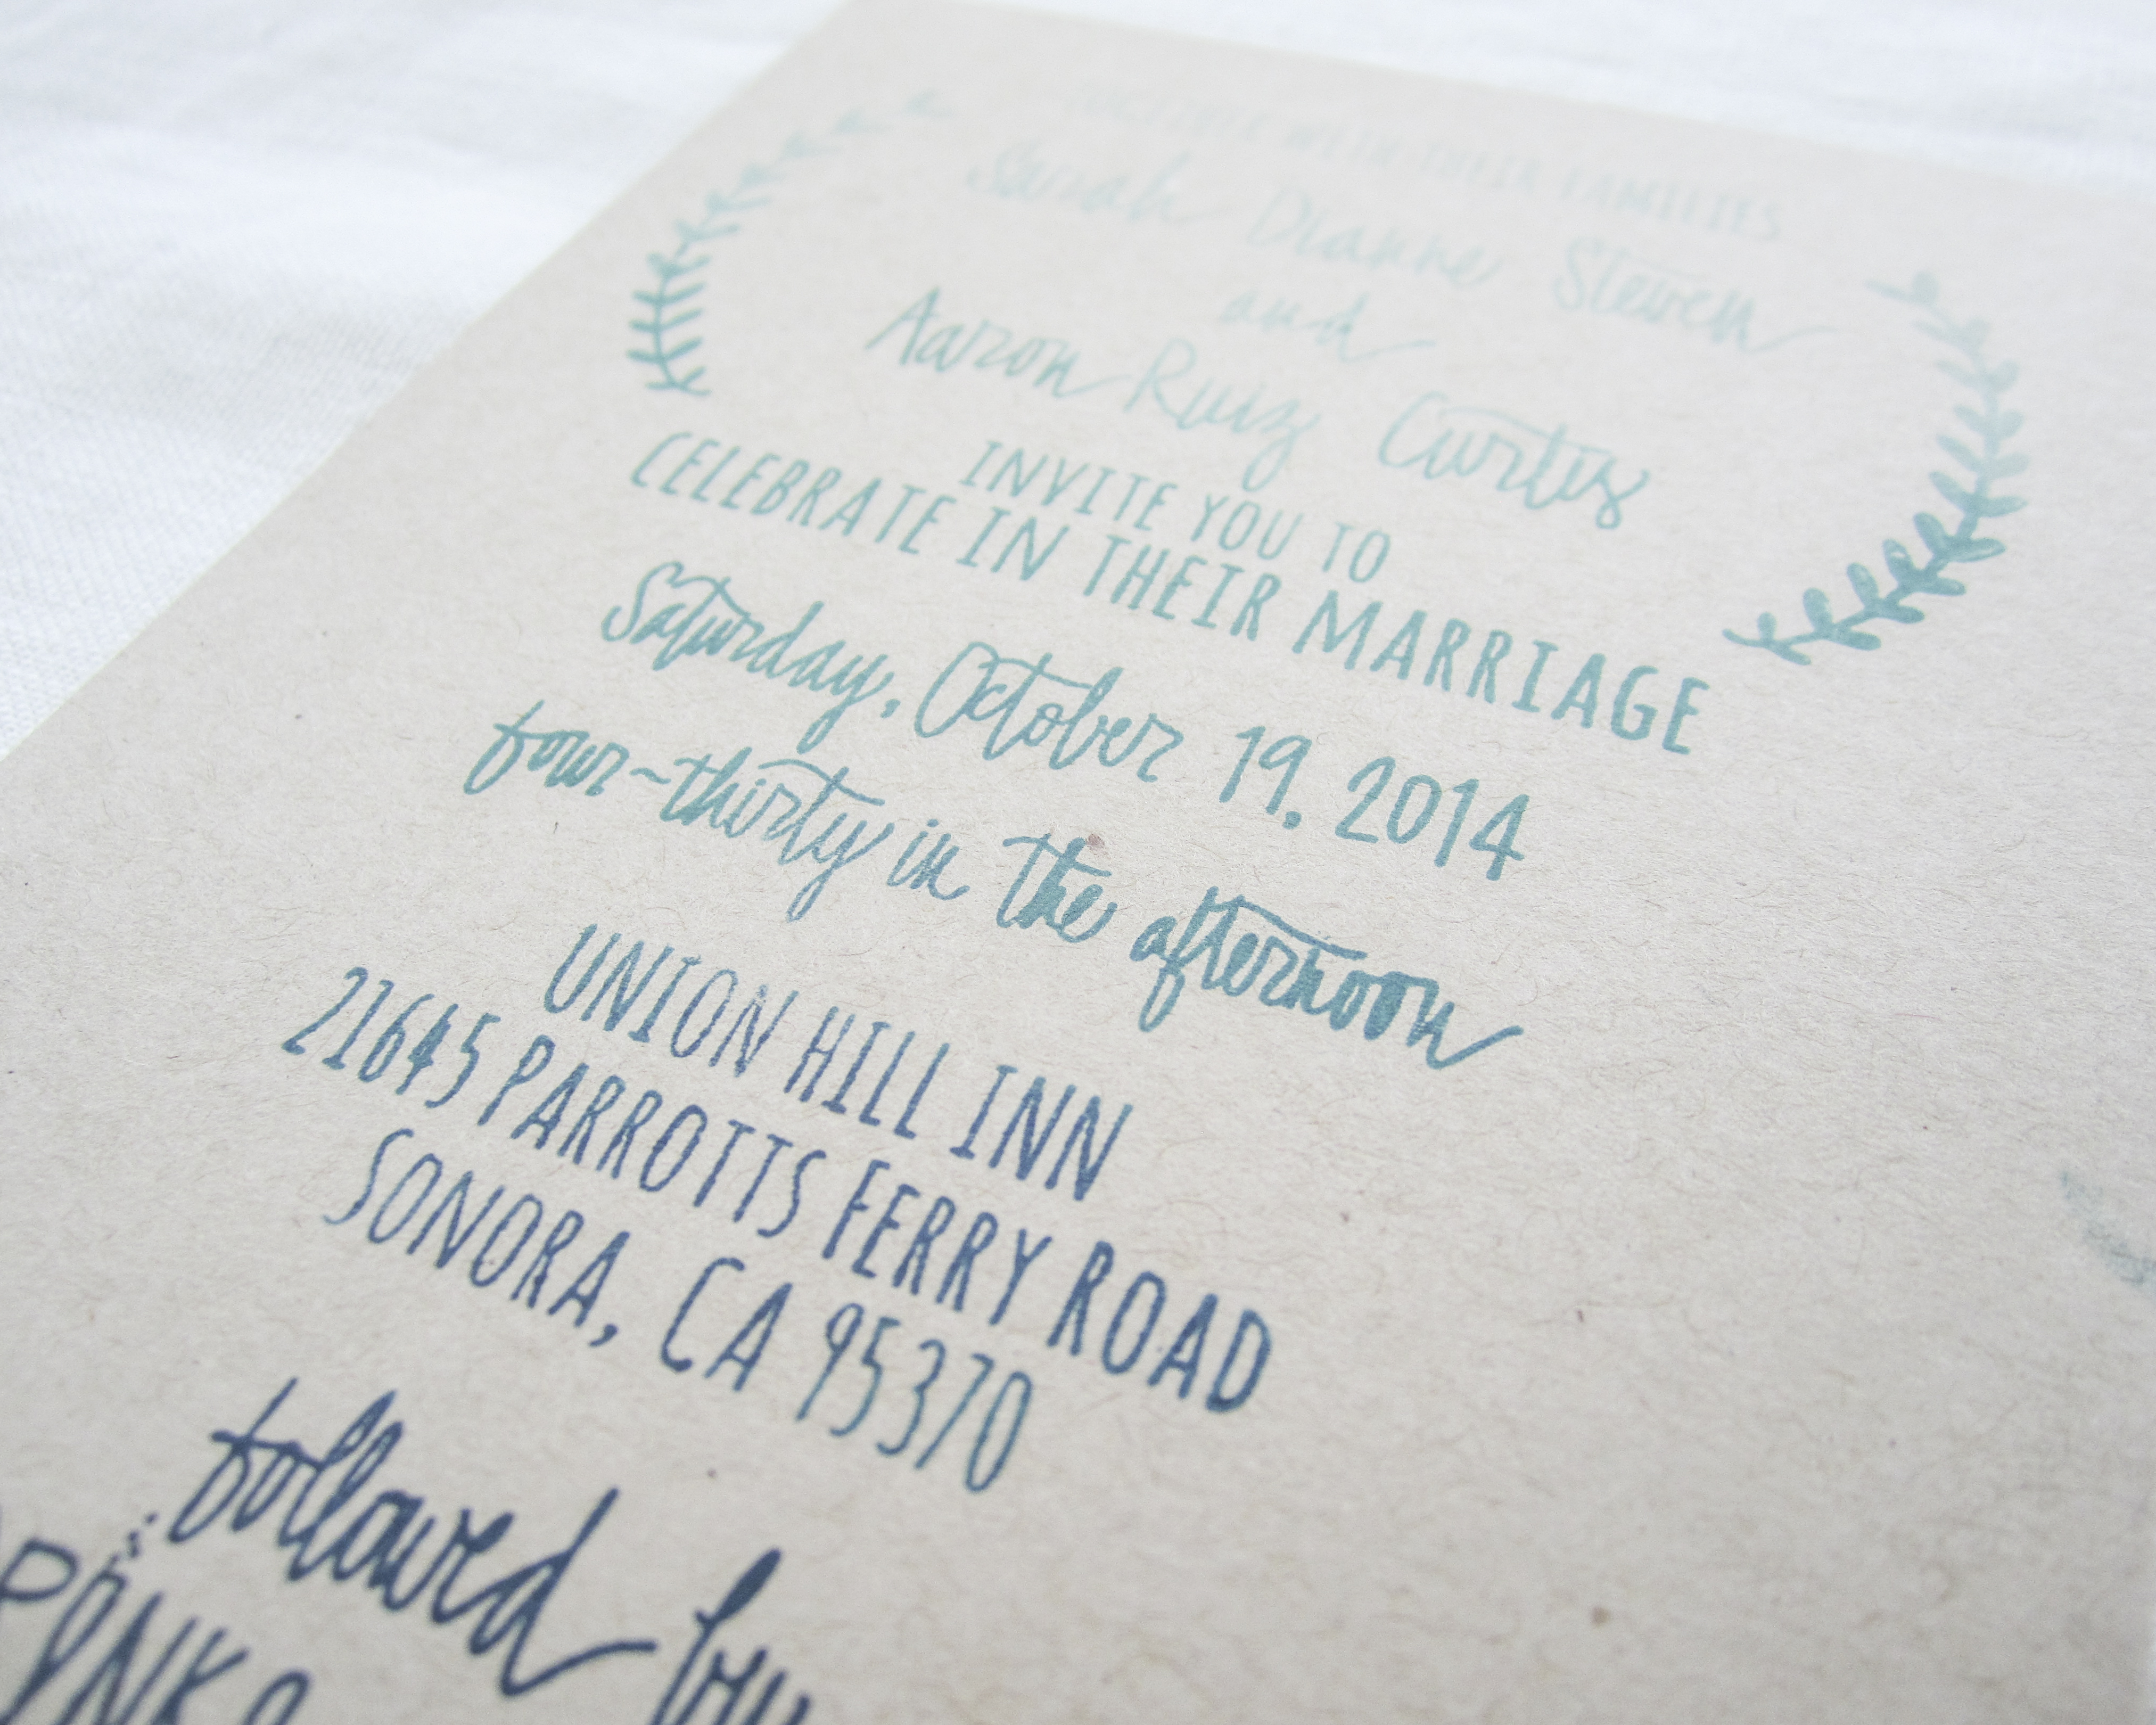 TOGETHER WITH THEIR FAMILIES
Sarah Dianne Steven
and
Aaron Ruiz Curtis
INVITE YOU TO
CELEBRATE IN THEIR MARRIAGE
Saturday, October 19, 2014
four-thirty in the afternoon
UNION HILL INN
21645 PARROTTS FERRY ROAD
SONORA, CA 95370
followed by